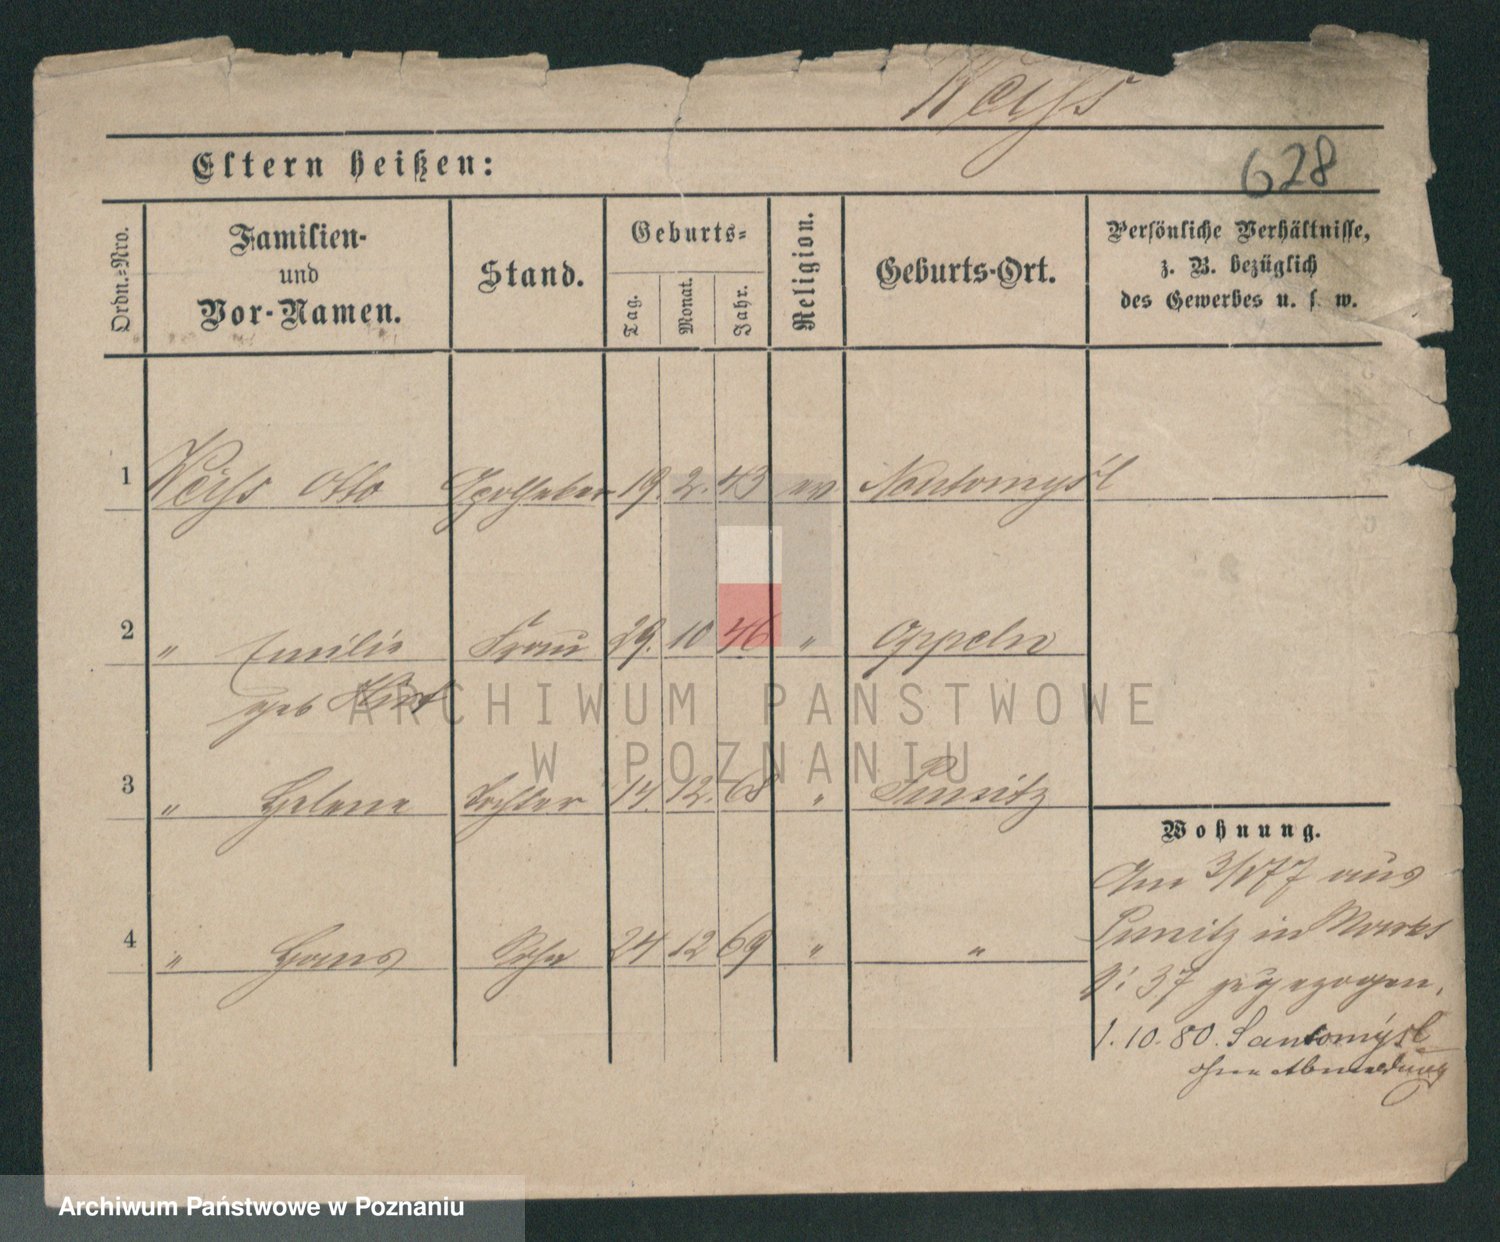 Weiss
628
Eltern heißen:
Ordn.-Nro.
Familien- und Vor-Namen.
Stand.
Geburts-
Tag.
Monat.
Jahr.
Religion.
Geburts-Ort.
Persönliche Verhältnisse,
z. B. bezüglich
des Gewerbes u. s. w.
1 Weiss Otto Apotheker 19. 2. 43 ev Neutomysl
2 " Emilie Frau 29. 10 46 " Oppeln
geb
3 " Helene Tochter 14. 12. 68 " Punitz
4 " Hans Sohn 24 12 69 " "
Wohnung.
Am 3/1 77 aus
Punitz in Markt
37 zugezogen.
1. 10. 80. Santomysl
ohne Abmeldung
ARCHIWUM PAŃSTWOWE
W POZNANIU
Archiwum Państwowe w Poznaniu